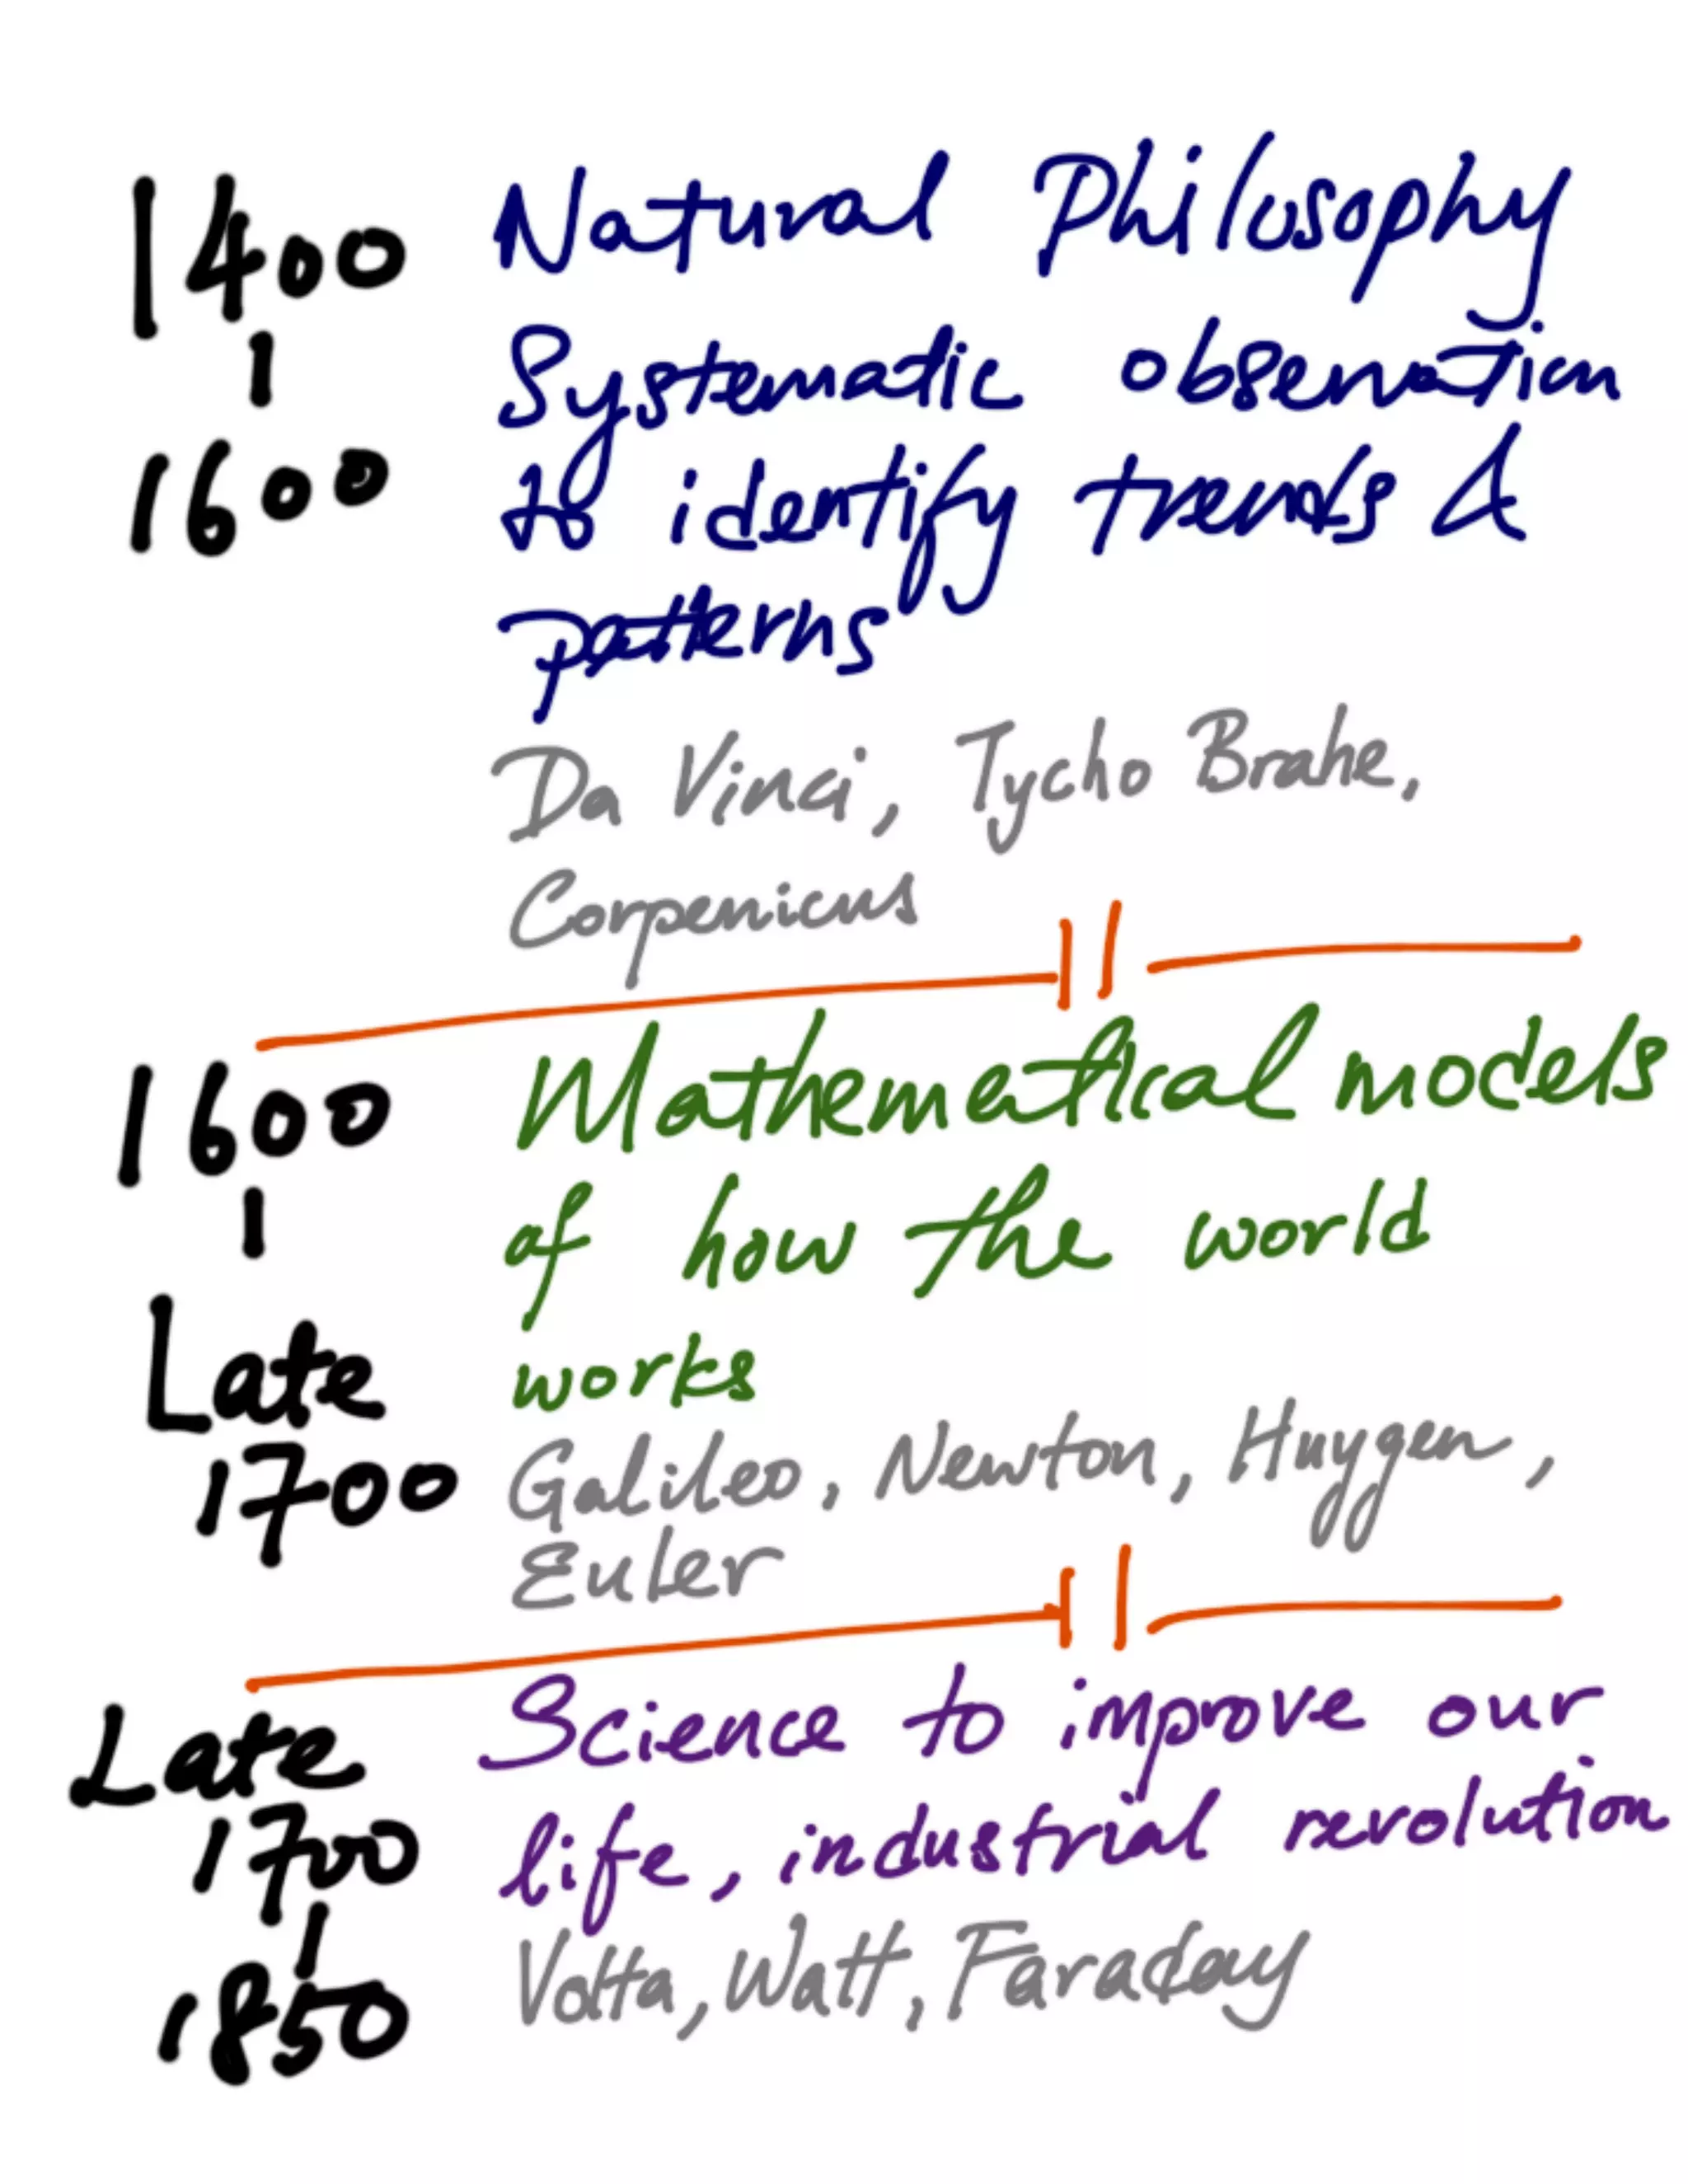 1400 Natural Philosophy
| Systematic observation
1600 to identify trends &
patterns
Da Vinci, Tycho Brahe,
Corpenicus
1600 Mathematical models
| of how the world
Late works
1700 Galileo, Newton, Huygen,
Euler
Late Science to improve our
1700 life, industrial revolution
| Volta, Watt, Faraday
1850